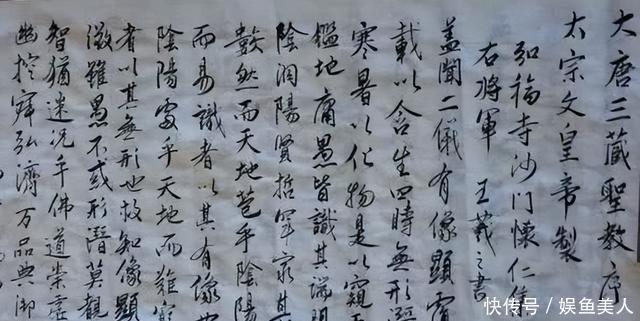 大唐三藏聖教序
太宗文皇帝製
弘福寺沙門懷仁集
右將軍 王羲之書
蓋聞二儀有像顯覆
載以含生四時無形潛
寒暑以化物是以窺天
鑑地庸愚皆識其端明
陰洞陽賢哲罕窮其
數然而天地苞乎陰陽
而易識者以其有像也
陰陽處乎天地而難窮
者以其無形也故知像顯
徵雖愚不惑形潛莫覩
智猶迷況乎佛道崇虛
幽控寂弘濟万品典御
快传号/娱鱼美人